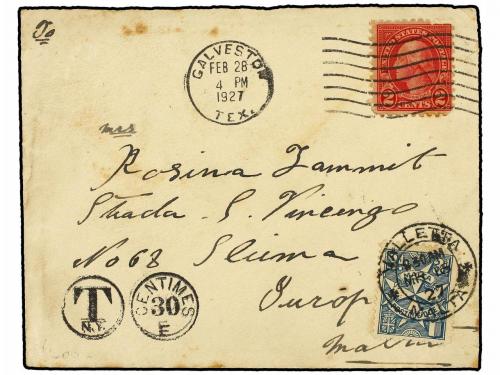 To
GALVESTON
FEB 28
4 PM
1927
TEX.
UNITED STATES POSTAGE
2 CENTS 2
mrs
Rosina Zammit
Strada S. Vincenzo
No 68 Sliema
Europ
Malta
T
N.Y.
CENTIMES
30
E
VALLETTA
MALTA
27